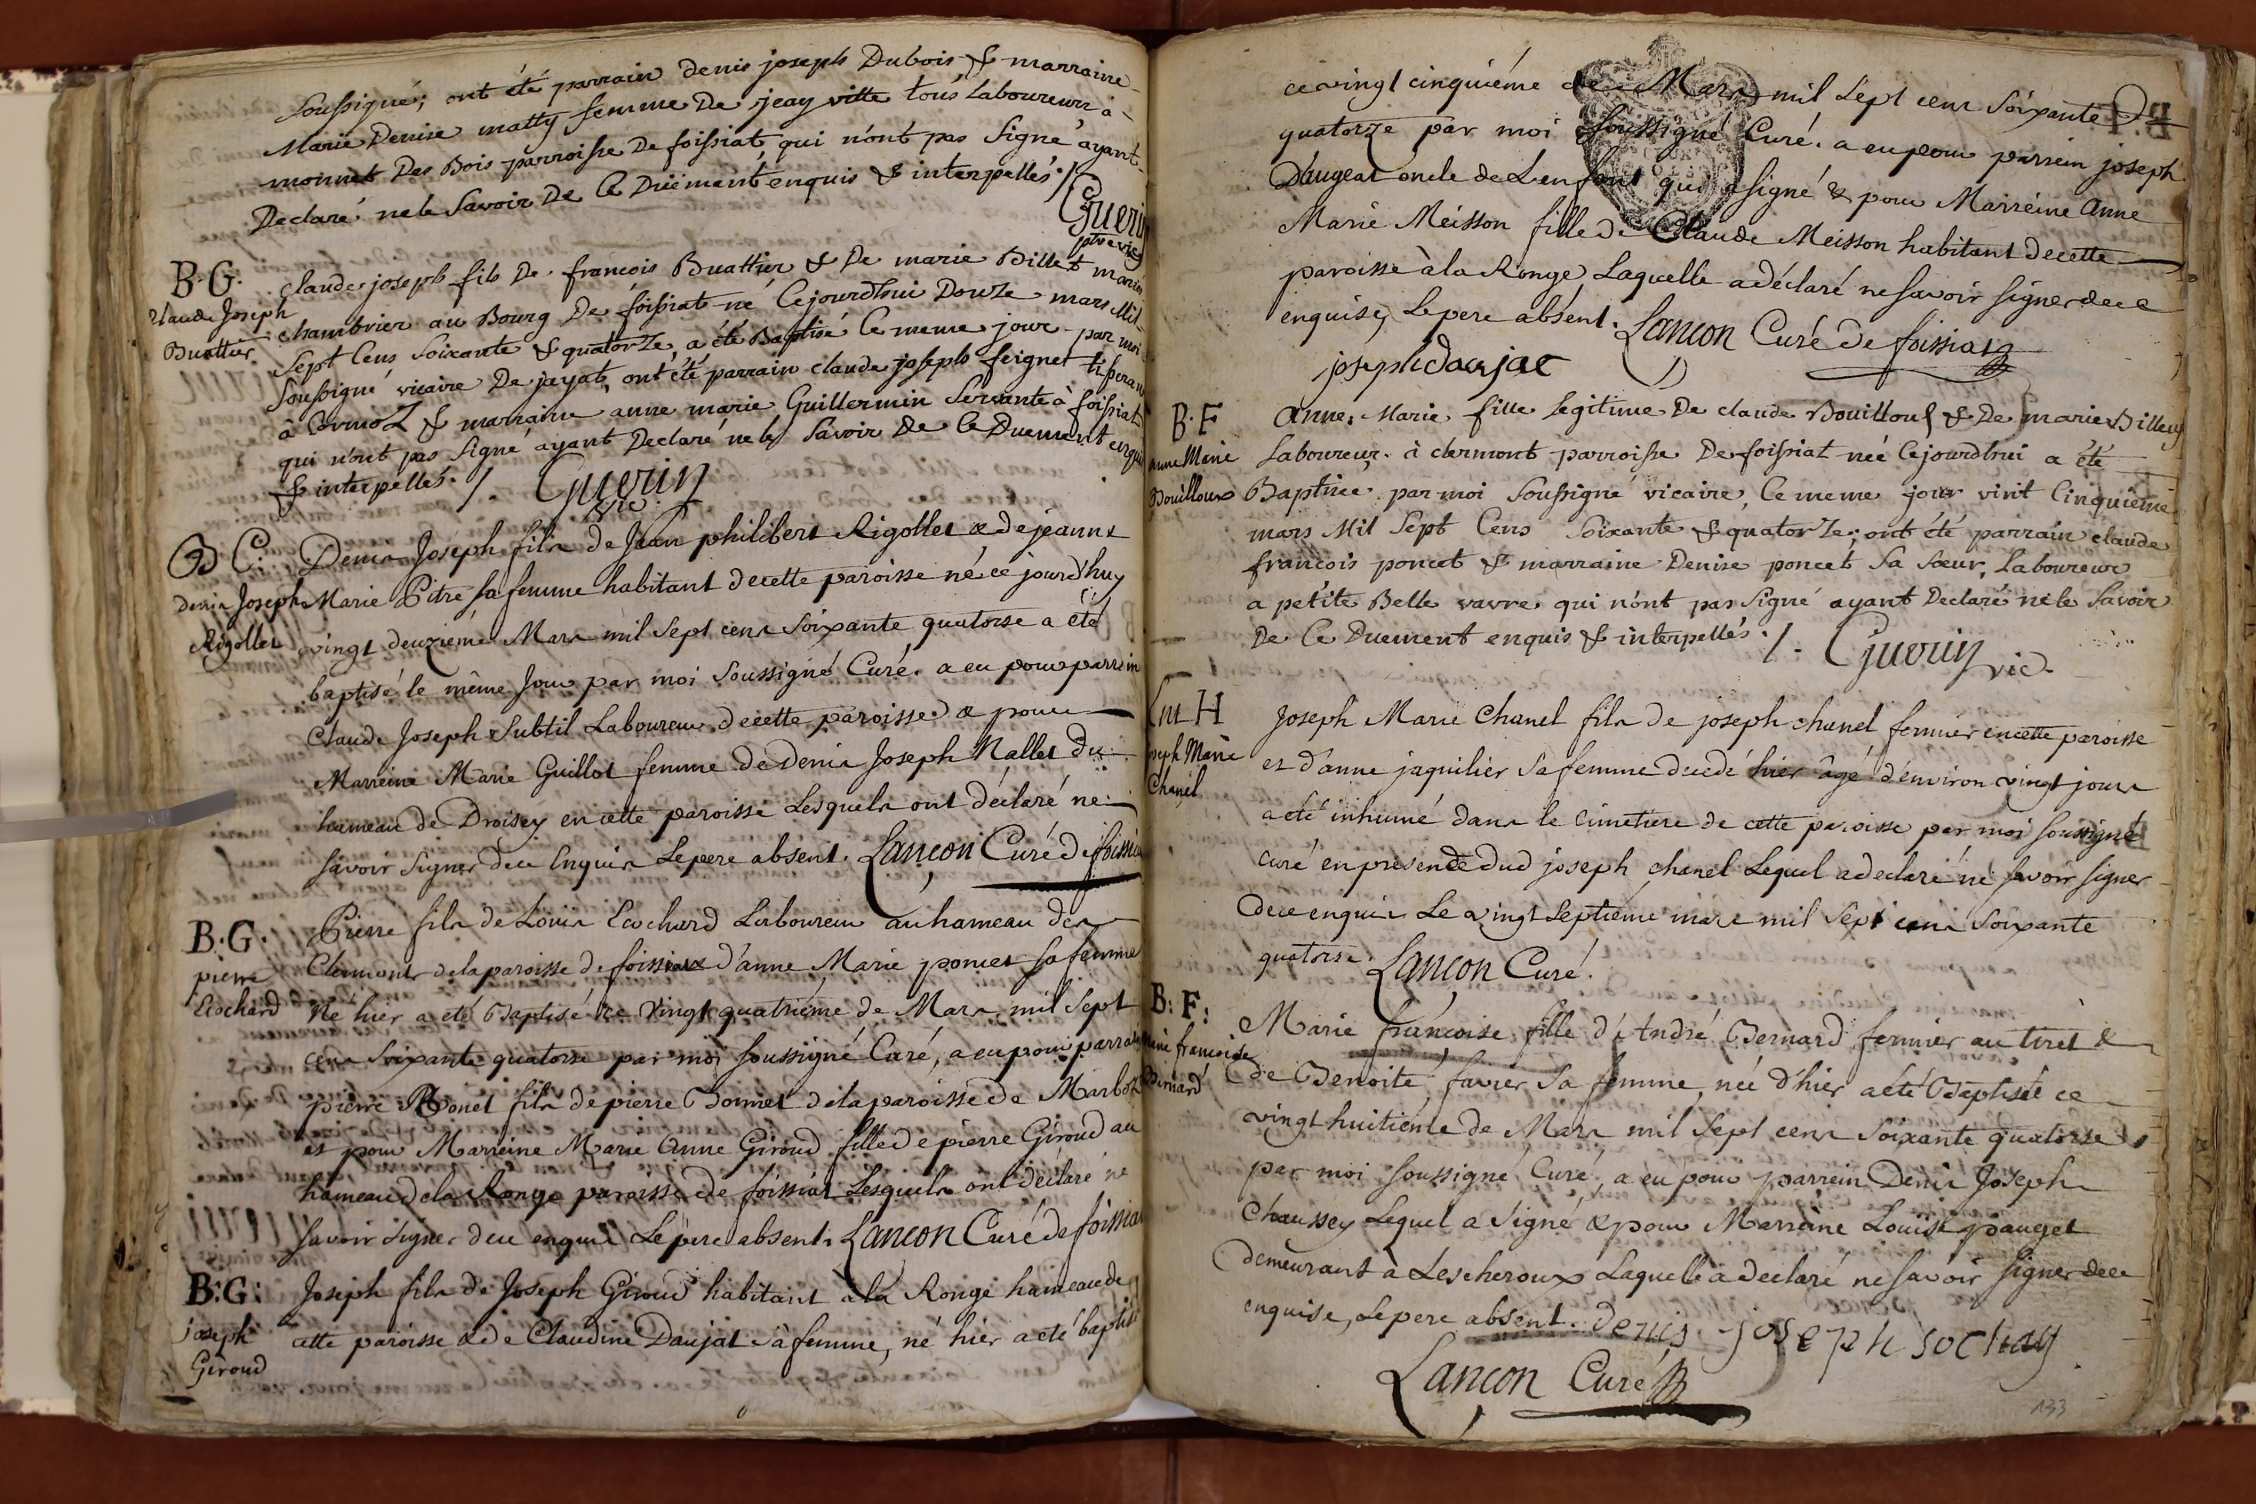 soussigné; ont été parrain denis joseph Dubois & marraine
Marie Denise matty femme De jean vitte tous Laboureurs à
monnet Des Bois parroisse De foissiat qui n'ont pas Signé ayant
Declaré ne le Savoir De Ce Düement enquis & interpellés ./.
Guerin
ptre vic
B. G.
Claude Joseph
Buattier
claude joseph fils De françois Buattier & De marie Billet
chambrier au Bourg De foissiat né Cejourdhui Douze mars Mil
Sept Cens Soixante & quatorze, a été Baptisé Ce meme jour par moi
Soussigné vicaire De jayat, ont été parrain claude joseph feignet
à Cormoz & marraine anne marie Guillermin Servante à foissiat
qui n'ont pas Signé ayant Declaré ne le Savoir De Ce Duement enquis
& interpellés ./. Guerin
vic
B C.
Denis Joseph
Rigollet
Denis Joseph fils de Jean philibert Rigollet & de jeanne
Marie Pitre sa femme habitant decette paroisse né ce jourd'huy
vingt deuxieme Mars mil Sept cens Soixante quatorse a été
baptisé le même Jour par moi Soussigné Curé. a eu pour parrein
Claude Joseph Subtil Laboureur decette paroisse & pour
Marreine Marie Guillot femme de Denis Joseph Nallet du
hameau de Droisey en cette paroisse Lesquels ont déclaré ne
savoir signer dece Enquis Le pere absent. Lançon Curé de foissia
B. G.
pierre
Ecochard
Pierre fils de Louis Ecochard Laboureur au hameau des
Clermonts dela paroisse de foissiat & d'anne Marie poncet sa femme
Né hier a été Baptisé ce vingt quatriéme de Mars mil Sept
cens soixante quatorse par moi soussigné Curé, a eu pour parrain
pierre Bonet fils de pierre Bonnet dela paroisse de Marboz
et pour Marreine Marie Anne Giroud fille de pierre Giroud au
hameau dela Ronge paroisse de foissiat Lesquels ont déclaré ne
savoir signer dece enquis Le pere absent. Lançon Curé de foissia
B. G.
joseph
Giroud
Joseph fils de Joseph Giroud habitant à la Ronge hameau de
cette paroisse & de Claudine Daujat sa femme, né hier a eté baptisé
ce vingt cinquiéme de Mars mil Sept cens Soixante
quatorze par moi soussigné Curé. a eu pour parrein joseph
Daugeat oncle de L'enfant qui a signé & pour Marreine Anne
Marie Meisson fille de Claude Meisson habitant de cette
paroisse à la Ronge, Laquelle a déclaré ne savoir signer dece
enquise, Le pere absent. Lançon Curé de foissiat
joseph daujat
B. F
anne Marie
Bouilloux
Anne Marie fille legitime De claude Bouilloux & De marie Billey
Laboureur à clermont parroisse De foissiat née Cejourdhui a été
Baptisée par moi Soussigné vicaire Ce meme jour vint Cinquieme
mars Mil Sept Cens Soixante & quatorze; ont été parrain claude
françois poncet & marraine Denise poncet Sa Sœur, Laboureur
a petite Belle vavre qui n'ont pas Signé ayant Declaré ne le Savoir
De Ce Duement enquis & interpellés ./. Guerin
vic
Ent H
Joseph Marie
Chanel
Joseph Marie Chanel fils de joseph chanel fermier en cette paroisse
et d'anne jaquilier Sa femme decedé hier âgé d'environ vingt jours
a été inhumé dans le cimetiere de cette paroisse par moi soussigné
curé en presence dud joseph chanel Lequel a declaré ne savoir signer
dece enquis Le vingt Septieme mars mil Sept cens Soixante
quatorse. Lançon Curé.
B: F:
Marie francoise
Bernard
Marie francoise fille d'André Bernard fermier au tiret &
de Benoite favier Sa femme, née d'hier a eté Baptisée ce
vingt huitieme de Mars mil Sept cens Soixante quatorse
par moi soussigné Curé, a eu pour parrein Denis Joseph
Chaussey Lequel a Signé & pour Marreine Louise pauget
demeurant à Lescheroux Laquelle a declaré ne savoir signer dece
enquise, Le pere absent. denis joseph sochay
Lançon Curé
133